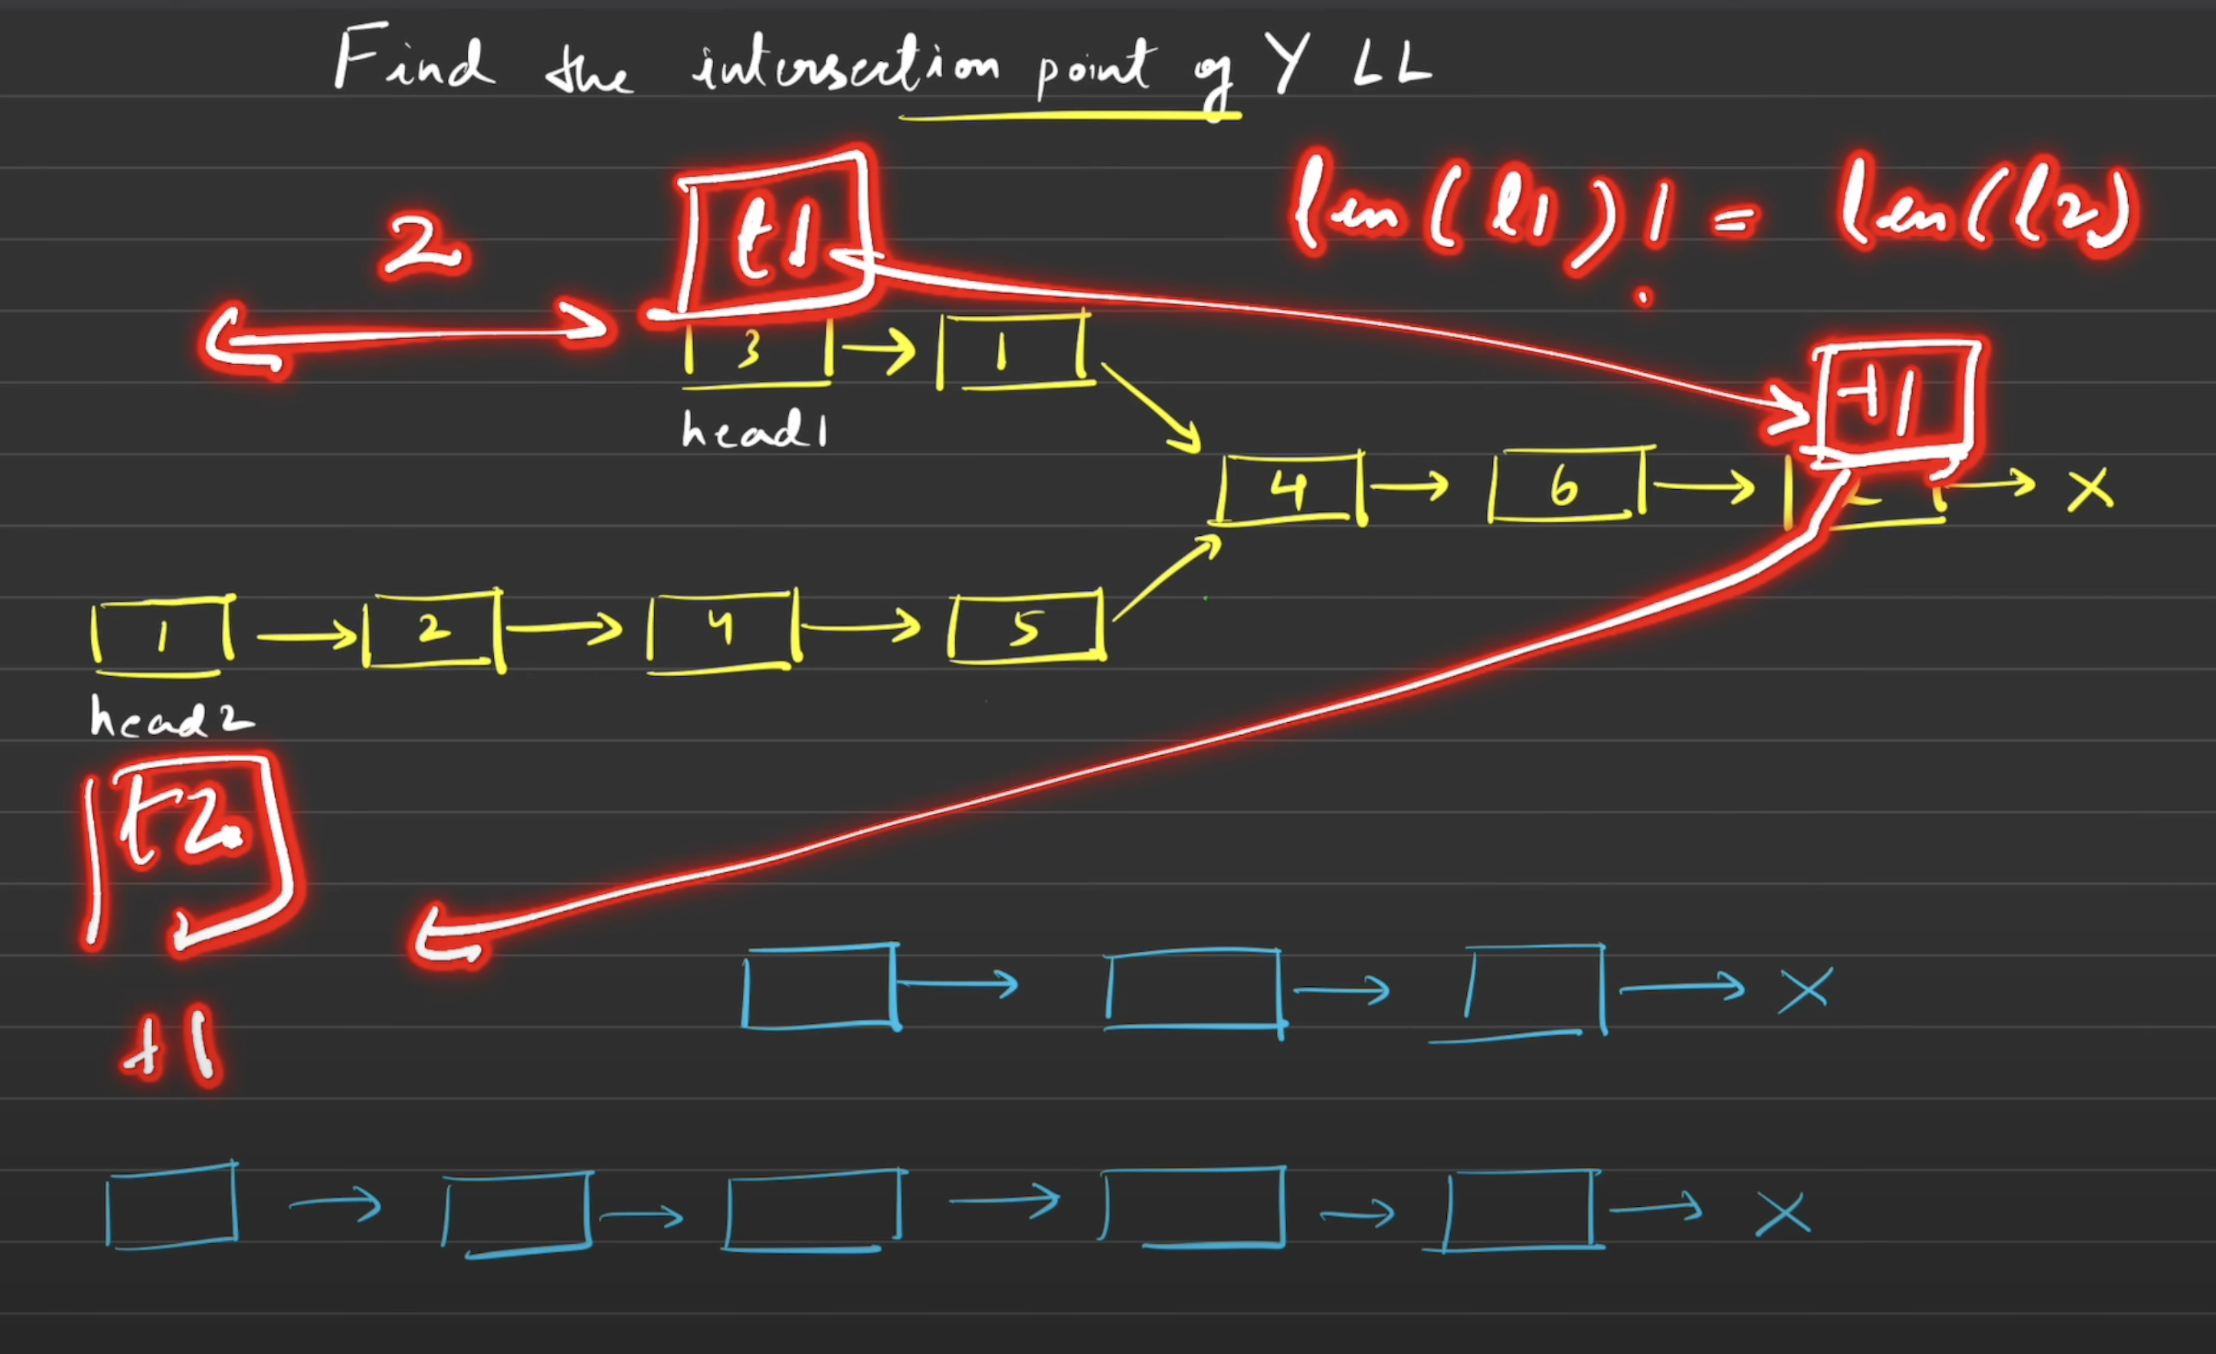 Find the intersection point of Y LL
len(l1) != len(l2)
2
t1
3 → 1
head1
t1
4 → 6 → → X
1 → 2 → 4 → 5
head2
t2
t1
→ → → X
→ → → → → X